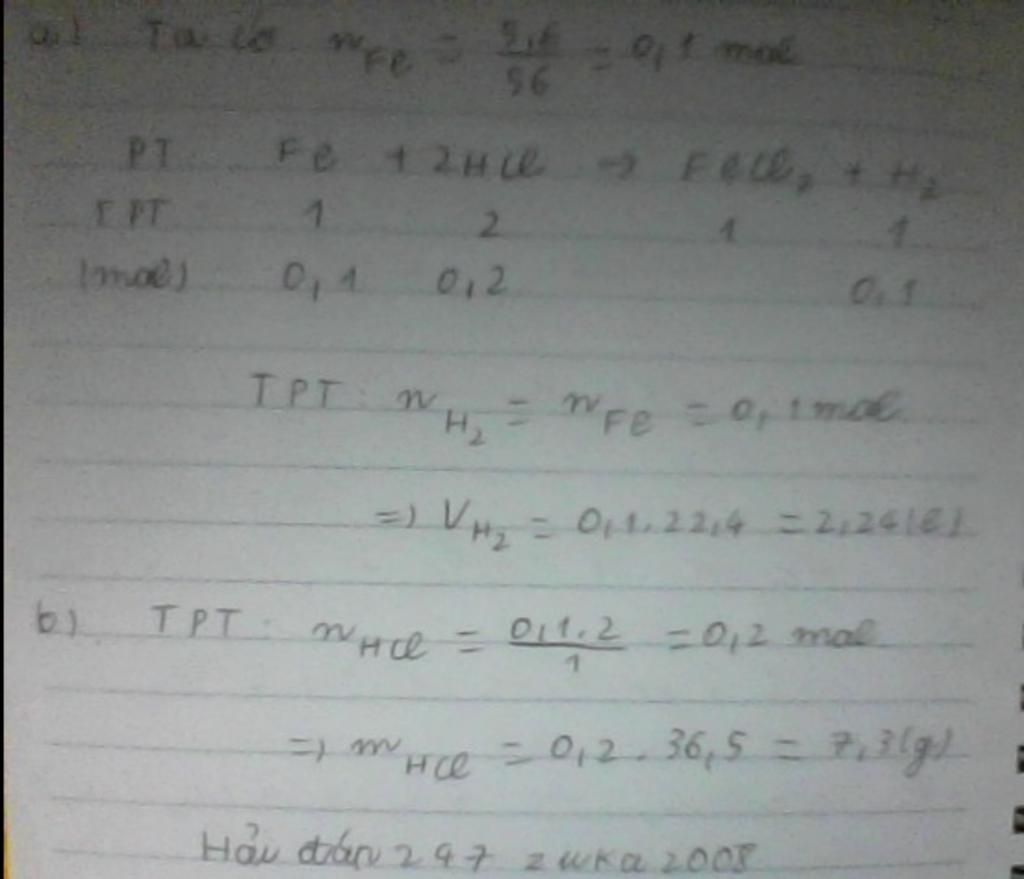 a) Ta có n_Fe = 5,6/56 = 0,1 mol
PT: Fe + 2HCl → FeCl₂ + H₂
TPT 1 2 1 1
(mol) 0,1 0,2 0,1
TPT: n_H₂ = n_Fe = 0,1 mol
=) V_H₂ = 0,1.22,4 = 2,24(l)
b) TPT: n_HCl = 0,1.2/1 = 0,2 mol
=) m_HCl = 0,2.36,5 = 7,3(g)
247 2008